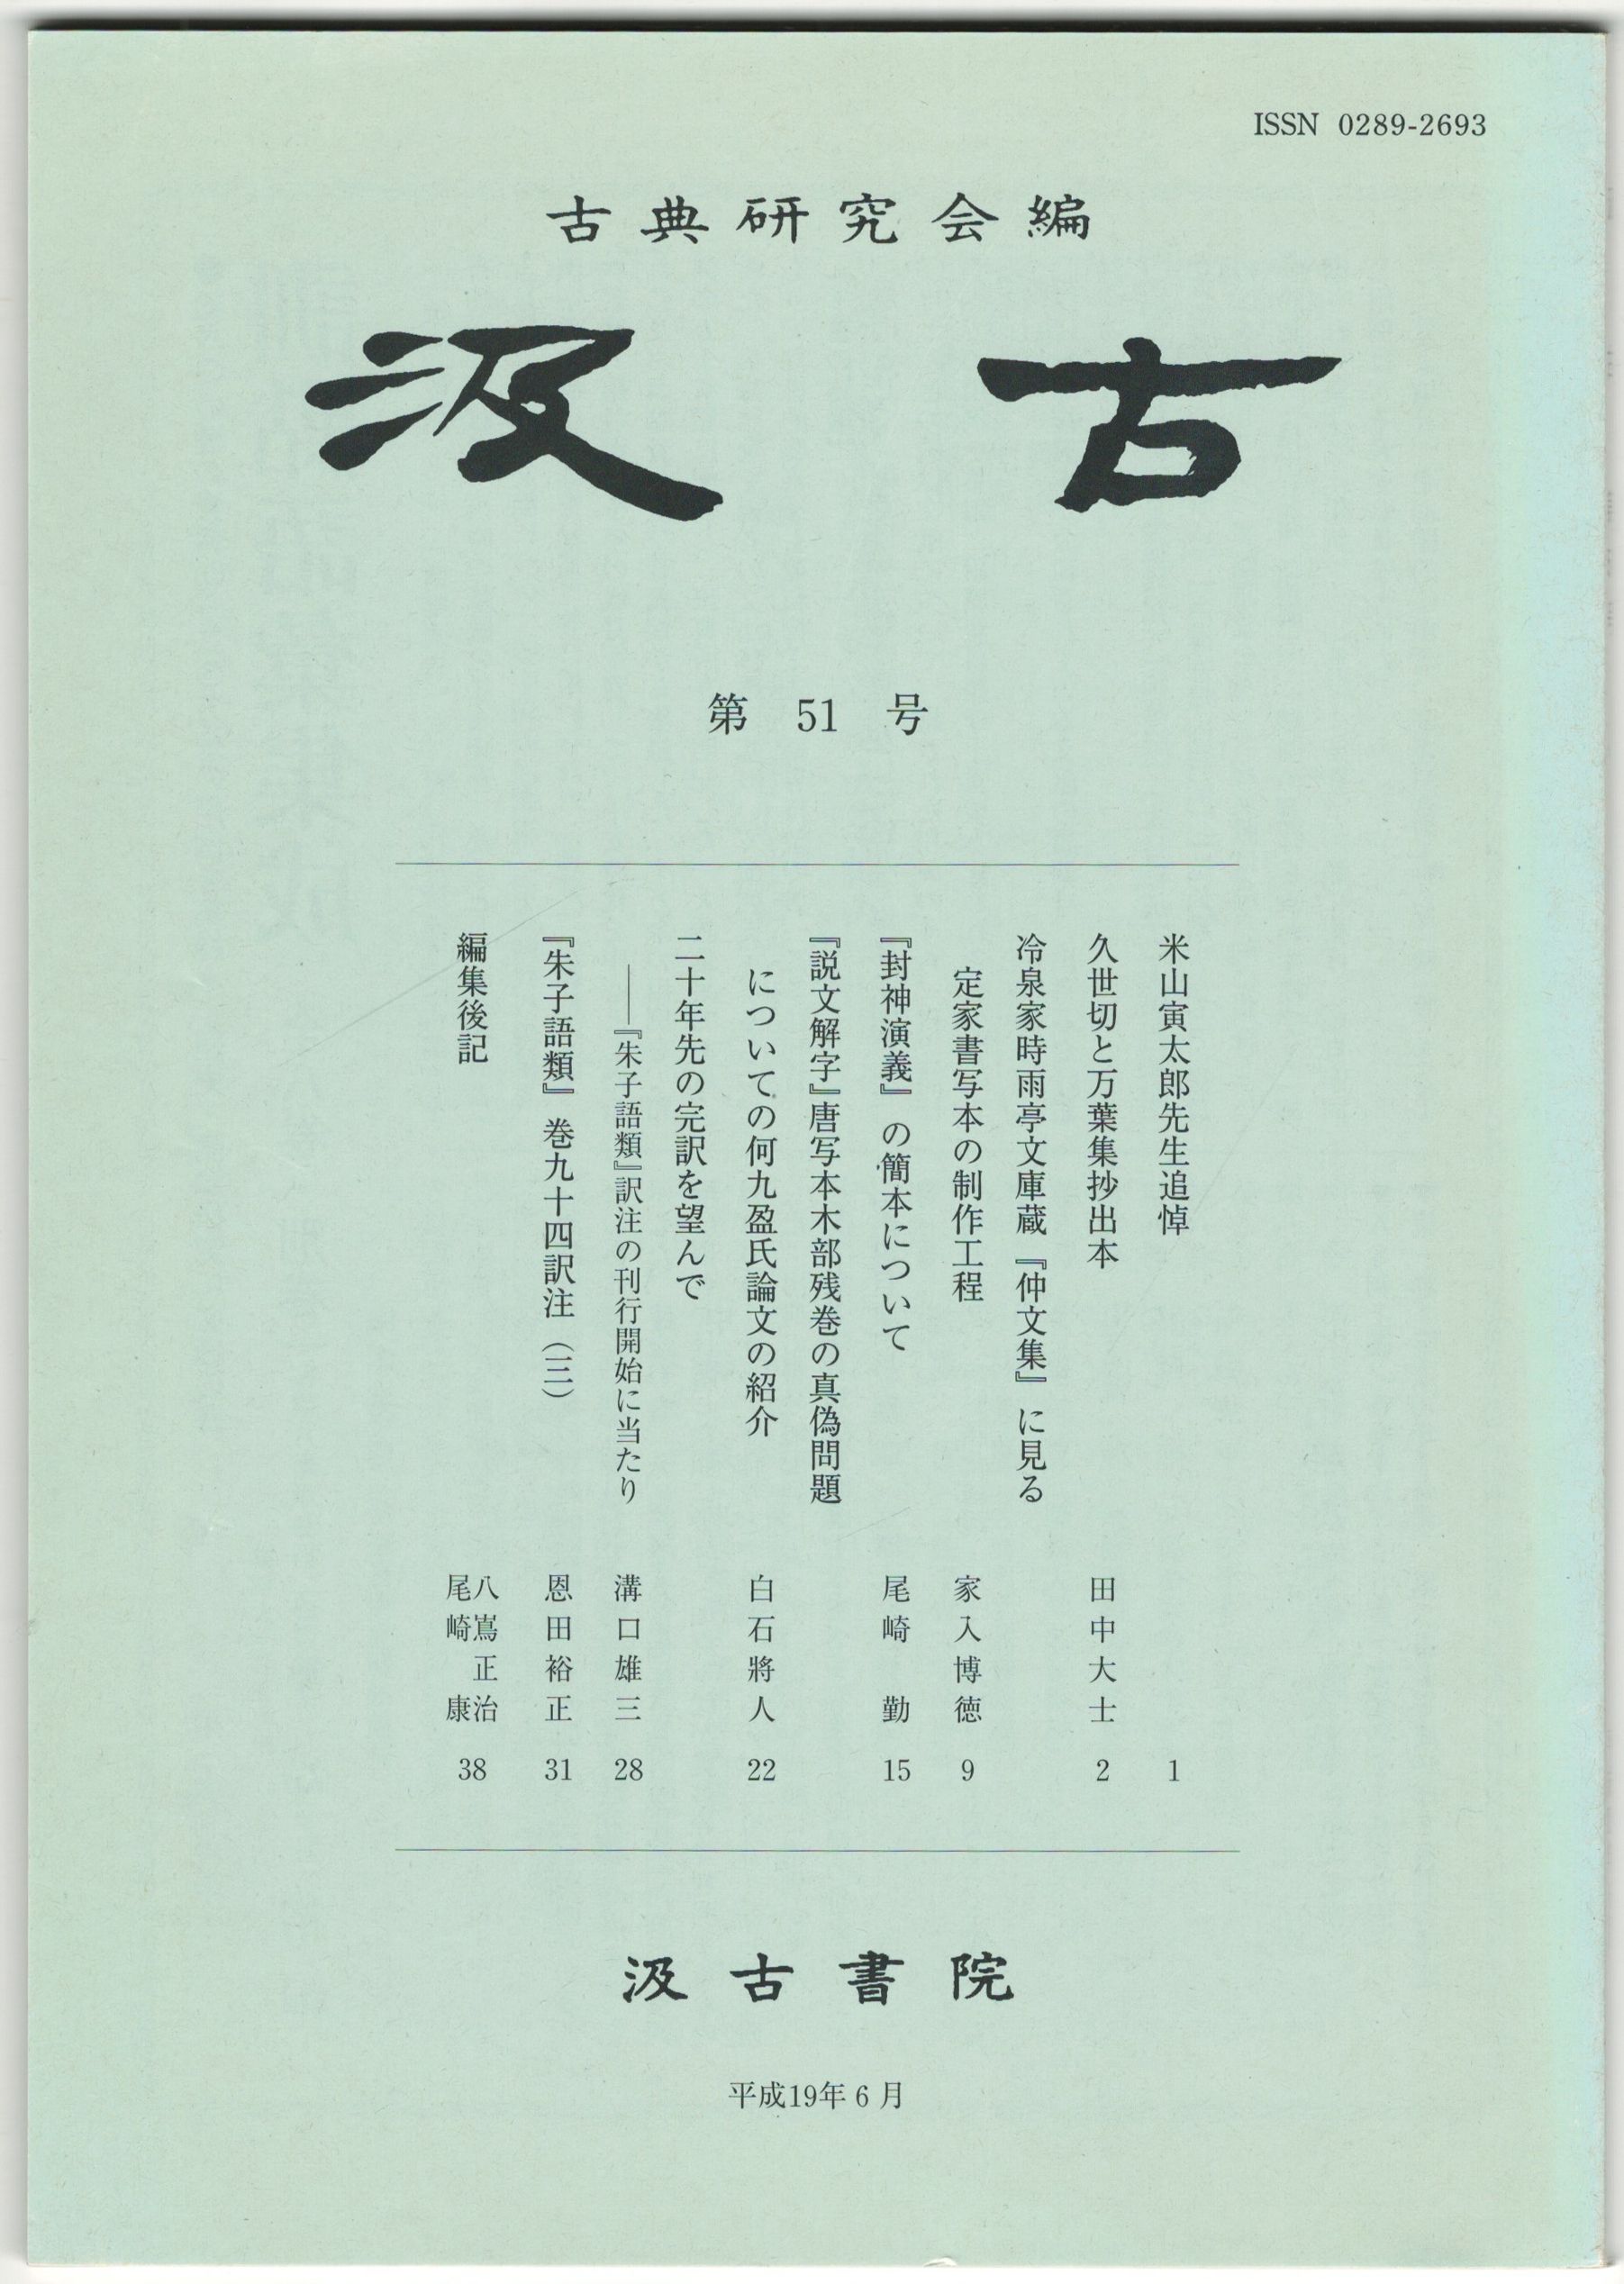 ISSN 0289-2693
古典研究会編
汲古
第 51 号
米山寅太郎先生追悼 1
久世切と万葉集抄出本 田中大士 2
冷泉家時雨亭文庫蔵『仲文集』に見る
定家書写本の制作工程 家入博徳 9
『封神演義』の簡本について 尾崎 勤 15
『説文解字』唐写本木部残巻の真偽問題
についての何九盈氏論文の紹介 白石將人 22
二十年先の完訳を望んで
――『朱子語類』訳注の刊行開始に当たり 溝口雄三 28
『朱子語類』巻九十四訳注(三) 恩田裕正 31
編集後記 八嶌正治 尾崎 康 38
汲古書院
平成19年6月